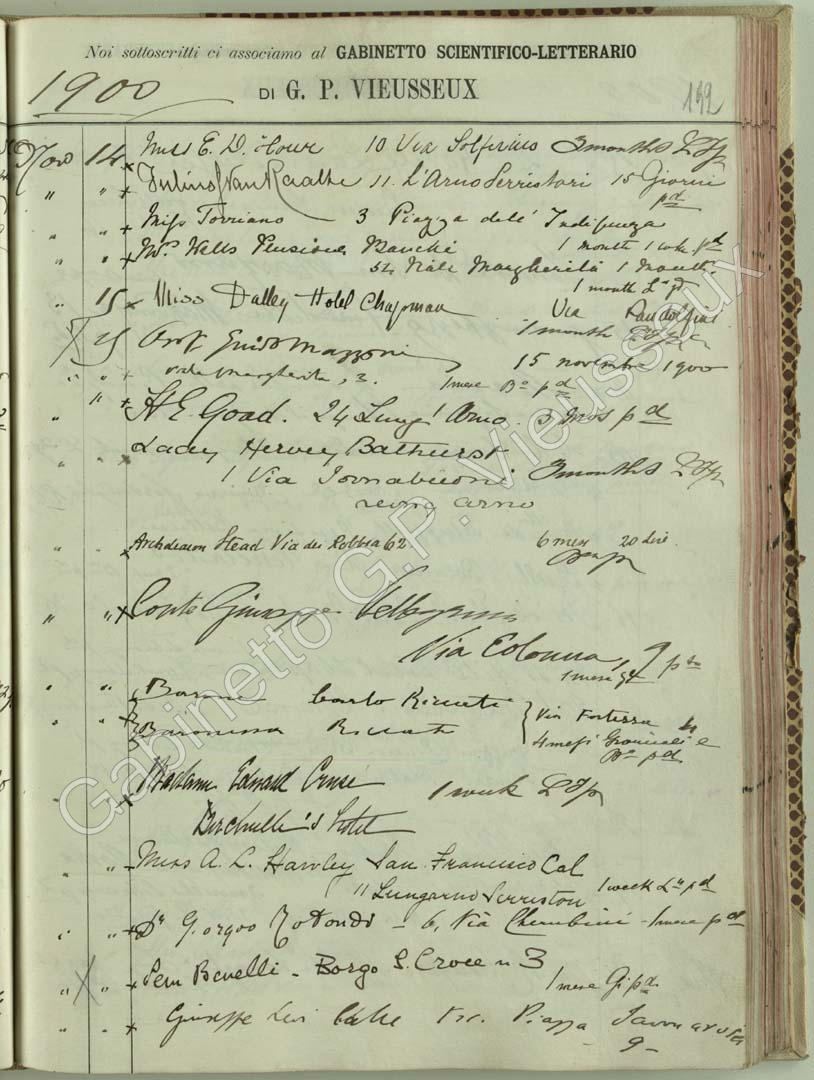 Noi sottoscritti ci associamo al GABINETTO SCIENTIFICO-LETTERARIO
DI G. P. VIEUSSEUX
1900
192
Nov 14 Miss E. D. 10 Via Solferino 3 months
" " Julius Van Raalte 11. L'Arno Serristori 15 Giorni pd
" " Miss Torriano 3 Piazza dell' Indipenza
" " Mrs Wells Pensione Banchi 1 month 1 wk pd
52 Viale Margherita 1 month
1 month pd
" 15 Miss Dalley Hotel Chapman Via Pandolfini
1 month
15 Prof Guido Mazzoni 15 novembre 1900
" " viale Margherita, 3. 1 mese Bo pd
" " H E Goad. 24 Lung' Arno 3 mos pd
Lady Hervey Bathurst
" " 1. Via Tornabuoni 3 months
Lung arno
" " Archdeacon Stead Via dei Robbia 62. 6 mesi 20 lire
" " Conte Giuseppe
Via Colonna, 9
1 mese
" " Barone Carlo Ricciati
" " Baronessa Via Fortezza
4 mesi Giornali e
Bo pd
Madame Edward Cruse 1 week
Hotel
" " Miss A. L. Hawley San Francisco Cal
11 Lungarno Serristori 1 week pd
" " Dr Giorgio Rotondi - 6, Via Cherubini - 1 mese pd
" " Sem Benelli - Borgo S. Croce n 3
1 mese Gi pd.
" " Giuseppe Levi Piazza Savonarola
- 9 -
Gabinetto G.P. Vieusseux